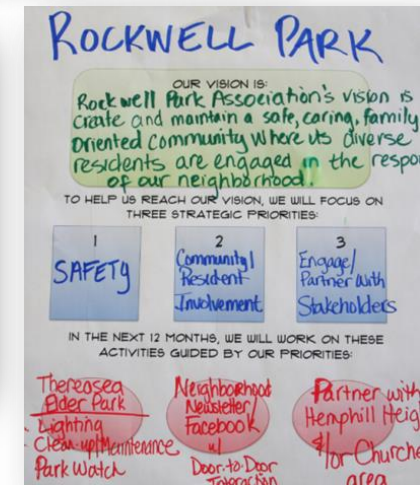 ROCKWELL PARK
OUR VISION IS:
Rockwell Park Association's vision is
create and maintain a safe, caring, family
Oriented community where its diverse
residents are engaged in the respo
of our neighborhood.
TO HELP US REACH OUR VISION, WE WILL FOCUS ON
THREE STRATEGIC PRIORITIES:
1
SAFETY
2
Community/
Resident
Involvement
3
Engage/
Partner with
Stakeholders
IN THE NEXT 12 MONTHS, WE WILL WORK ON THESE
ACTIVITIES GUIDED BY OUR PRIORITIES:
Thereasea
Elder Park
Lighting
Clean-up/Maintenance
Park Watch
Neighborhood
Newsletter/
Facebook
w/
Door-to-Door
Interaction
Partner with
Hemphill Heig
&/or Churche
area